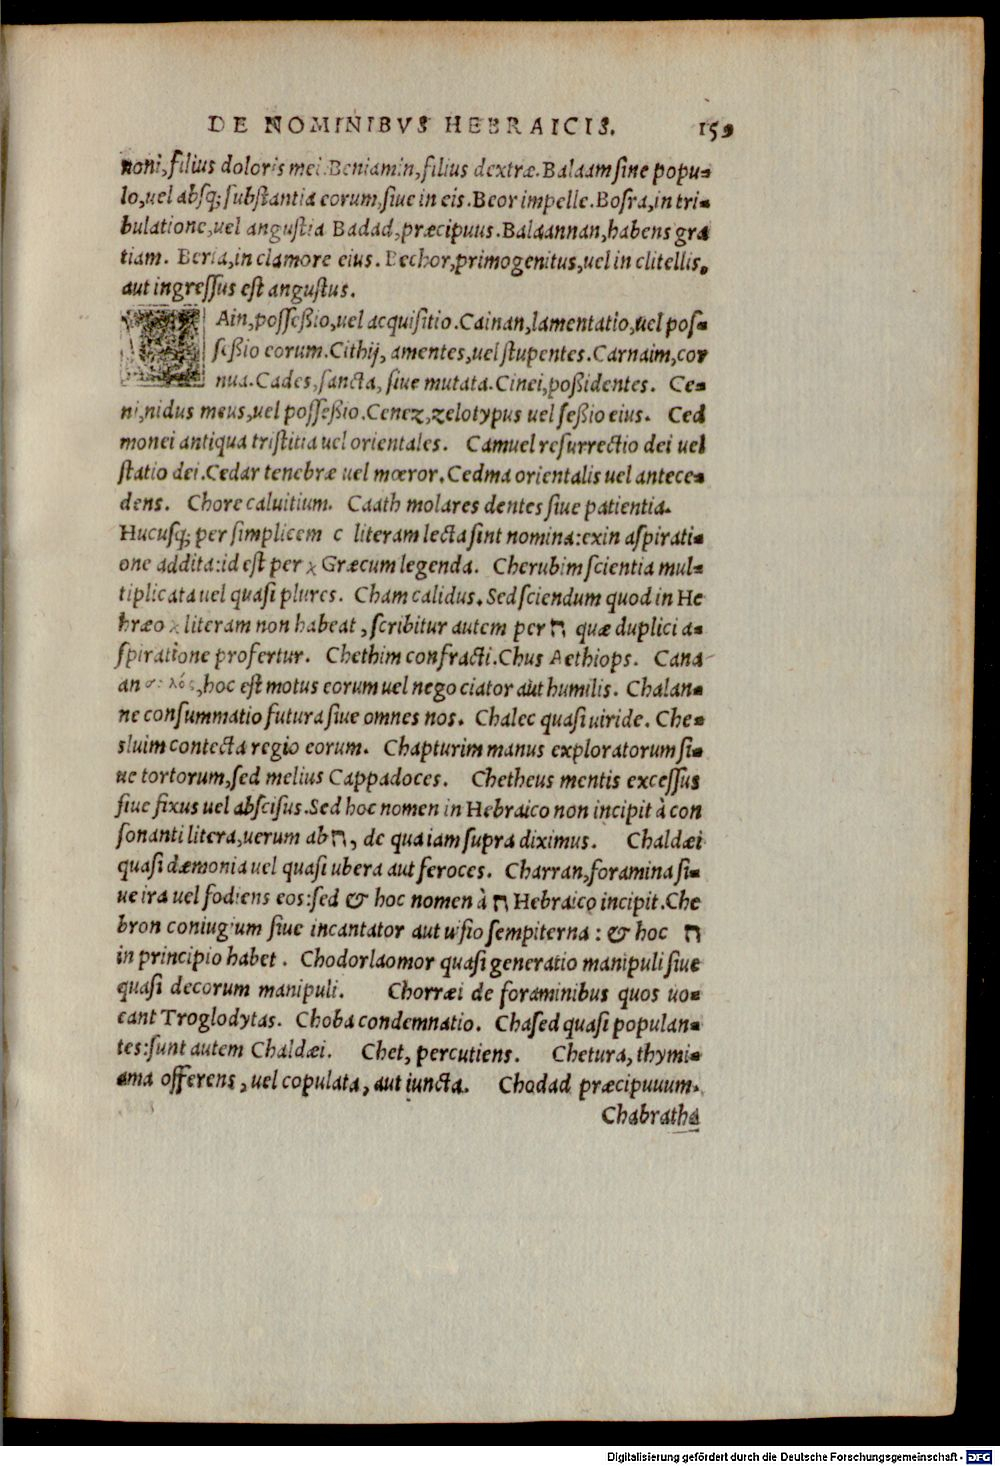 DE NOMINIBVS HEBRAICIS. 159
noni, filius doloris mei. Beniamin, filius dextræ. Balaam sine popu-
lo, uel absq; substantia eorum, siue in eis. Beor impelle. Bosra, in tri-
bulatione, uel angustia Badad, præcipuus. Balaannan, habens gra
tiam. Beria, in clamore eius. Bechor, primogenitus, uel in clitellis,
aut ingressus est angustus.
Ain, possessio, uel acquisitio. Cainan, lamentatio, uel pos-
sessio eorum. Cithij, amentes, uel stupentes. Carnaim, cor
nua. Cades, sancta, siue mutata. Cinei, possidentes. Ce-
ni, nidus meus, uel possessio. Cenez, zelotypus uel sessio eius. Ced
monei antiqua tristitia uel orientales. Camuel resurrectio dei uel
statio dei. Cedar tenebræ uel mœror. Cedma orientalis uel antece-
dens. Chore caluitium. Caath molares dentes siue patientia.
Hucusq; per simplicem c literam lecta sint nomina: exin aspirati-
one addita: id est per χ Græcum legenda. Cherubim scientia mul-
tiplicata uel quasi plures. Cham calidus. Sed sciendum quod in He
bræo χ literam non habeat, scribitur autem per ח quæ duplici a-
spiratione profertur. Chethim confracti. Chus Aethiops. Cana
an hoc est motus eorum uel nego ciator aut humilis. Chalan-
ne consummatio futura siue omnes nos. Chalec quasi uiride. Che-
sluim contecta regio eorum. Chapturim manus exploratorum si-
ue tortorum, sed melius Cappadoces. Chetheus mentis excessus
siue fixus uel abscisus. Sed hoc nomen in Hebraico non incipit à con
sonanti litera, uerum ab ח, de qua iam supra diximus. Chaldæi
quasi dæmonia uel quasi ubera aut feroces. Charran, foramina si-
ue ira uel fodiens eos: sed & hoc nomen à ח Hebraico incipit. Che
bron coniugium siue incantator aut uisio sempiterna: & hoc ח
in principio habet. Chodorlaomor quasi generatio manipuli siue
quasi decorum manipuli. Chorræi de foraminibus quos uo-
cant Troglodytas. Choba condemnatio. Chased quasi populan-
tes: sunt autem Chaldæi. Chet, percutiens. Chetura, thymi-
ama offerens, uel copulata, aut iuncta. Chodad præcipuuum.
Chabratha
Digitalisierung gefördert durch die Deutsche Forschungsgemeinschaft - DFG